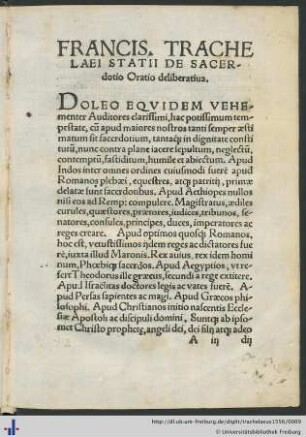 FRANCIS. TRACHE
LAEI STATII DE SACER-
dotio Oratio deliberatiua.
DOLEO EQVIDEM VEHE-
menter Auditores clarissimi, hac potissimum tem-
pestate, cũ apud maiores nostros tanti semper æsti
matum sit sacerdotium, tantaq̃ in dignitate consti
tutũ, nunc contra plane iacere sepultum, neglectũ,
contemptũ, fastiditum, humile et abiectum. Apud
Indos inter omnes ordines cuiusmodi fuerẽ apud
Romanos plebæi, equestres, atq̃ patritij, primæ
delatæ sunt sacerdotibus. Apud Aethiopes millos
nisi eos ad Remp: compulere. Magistratus, ædiles
curules, quæstores, prætores, iudices, tribunos, se-
natores, consules, principes, duces, imperatores ac
reges creare. Apud optimos quosq̃ Romanos,
hoc est, vetustissimos ijdem reges ac dictatores fue
rẽ, iuxta illud Maronis. Rex auius, rex idem homi
num, Phœbiq̃ sacerdos. Apud Aegyptios, vt re-
fert Theodorus ille græcus, secundi a rege extitere.
Apud Israëlitas doctores legis ac vates fuerẽ. A-
pud Persas sapientes ac magi. Apud Græcos phi
losophi. Apud Christianos initio nascentis Eccle-
siæ Apostoli ac discipuli domini. Suntq̃ ab ipso-
met Christo prophetę, angeli dei, dei filij atq̃ adeo
A iij dij
http://dl.ub.uni-freiburg.de/diglit/trachelaeus1556/0009
© Universitätsbibliothek Freiburg